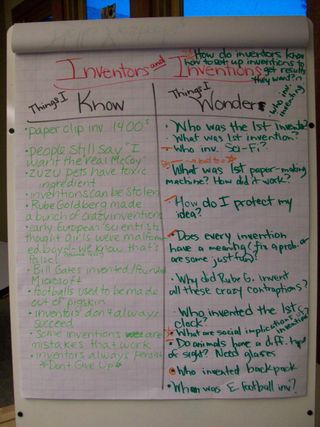 How do inventors know
how to set up inventions to
get results
they want?
Who inv.
inventing
Inventors and
Inventions
Things I
Know
Things I
Wonder
• paper clip inv. 1400s
• people still say "I
want the real McCoy"
• ZUZU pets have toxic
ingredient
• inventions can be stolen
• Rube Goldberg made
a bunch of crazy inventions
• early European scientists
thought girls were malform-
ed boys - we know that's
false!
• Bill Gates invented/founded
Microsoft
• footballs used to be made
out of pigskin
• inventors don't always
succeed
• some inventions were are
mistakes that work
• inventors always persist
*Don't Give Up*
• Who was the 1st inventor?
• What was 1st invention?
• Who inv. Sci-Fi?
• What was 1st paper-making
machine? How did it work?
• How do I protect my
idea?
• Does every invention
have a meaning (fix a prob. or
are some just fun)?
• Why did Rube G. invent
all these crazy contraptions?
• Who invented the 1st
clock?
• What are social implications of
inventions?
• Do animals have a diff. type
of sight? Need glasses
• Who invented backpack
• When was E football inv?